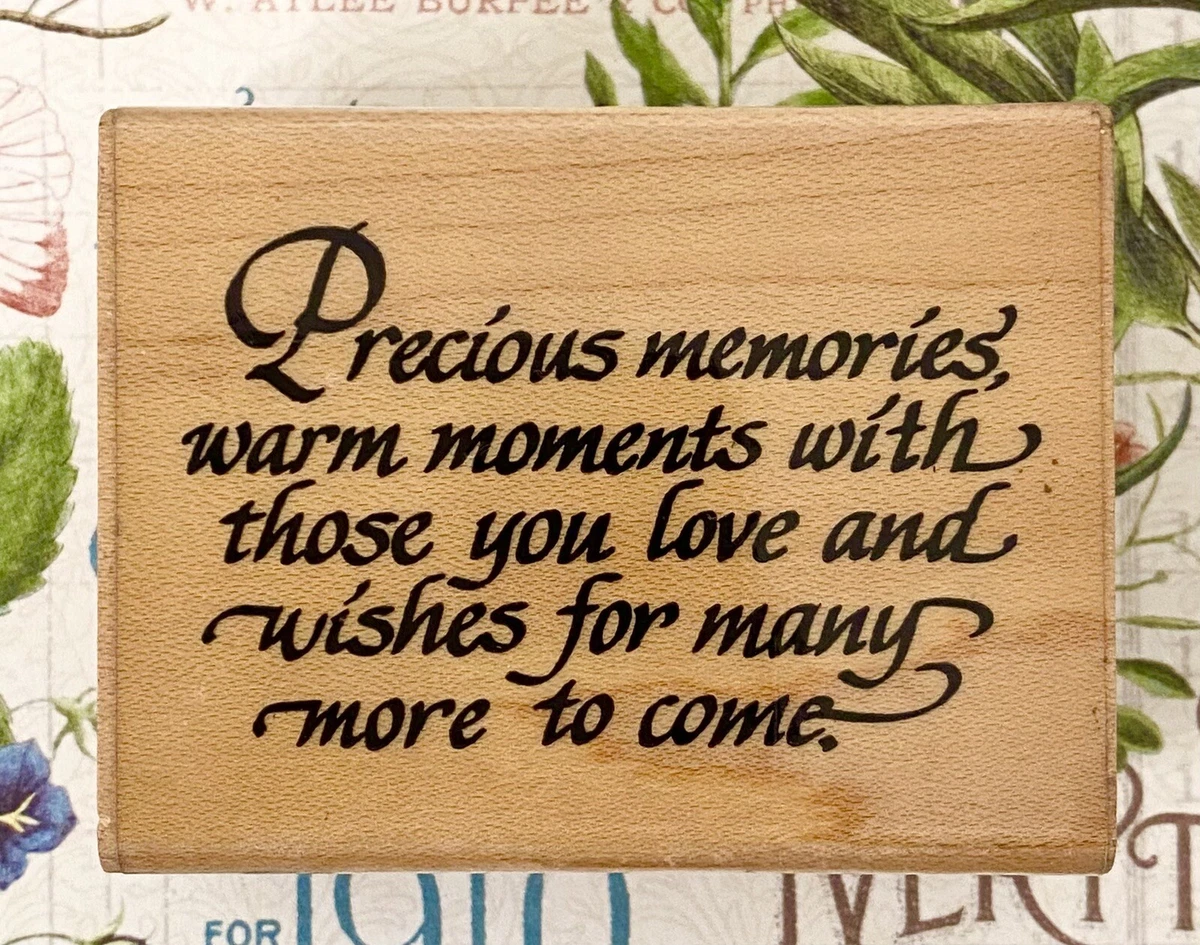 W. ATLEE BURPEE & CO. PH
Precious memories,
warm moments with
those you love and
wishes for many
more to come.
FOR